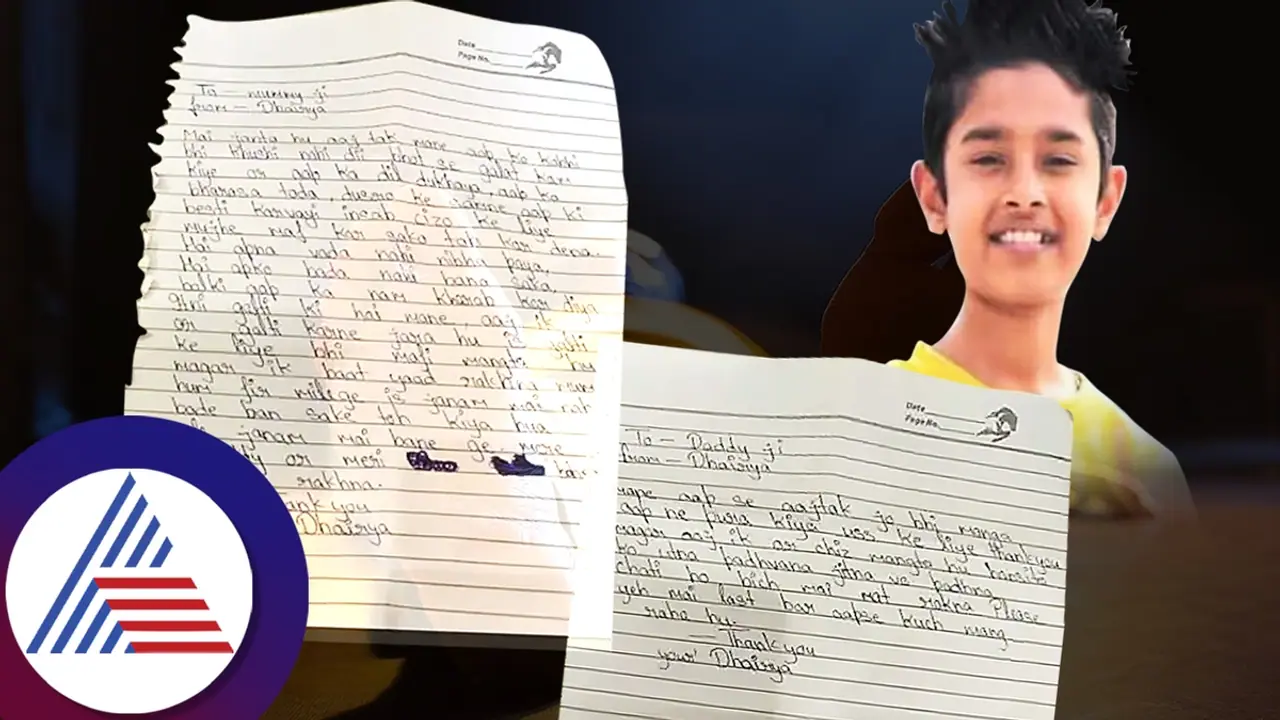 Date
Page No.
To — mummy ji
from — Dhairya
Mai janta hu aaj tak mane aap ko kabhi
bhi khushi nahi di bhot se galat kam
kiye or aap ka dil dukhaya, aap ka
bharasa toda, ke samne aap ki
besti karvayi incab cizo ke liye
mujhe maf kar sako toh kar dena.
Mai apna vada nahi nibhu paya,
Mai apke bada nahi bana saka,
balki aap ka nam kharab kar diya
itni galti ki hai mane, aaj ik
or galti karne jara hu is galti
ke liye bhi mafi mangta hu
magar ik baat yaad rakhna mum
hum fir milege is janam mai nah
bade ban sake toh kiya hua
janam mai bane ge mere
or meri
rakhna.
ank you
Dhairya
Date
Page No.
To — Daddy ji
from — Dhairya
aap se aajtak jo bhi manga
aap ne pura kiye uss ke liye thankyou
magar aaj ik or chiz mangta hu
ko utna padhvana jitna ve padhna
chati ho bich mai mat rokna Please
yeh mai last bar aapse kuch mang
raha hu.
— Thank you
your Dhairya